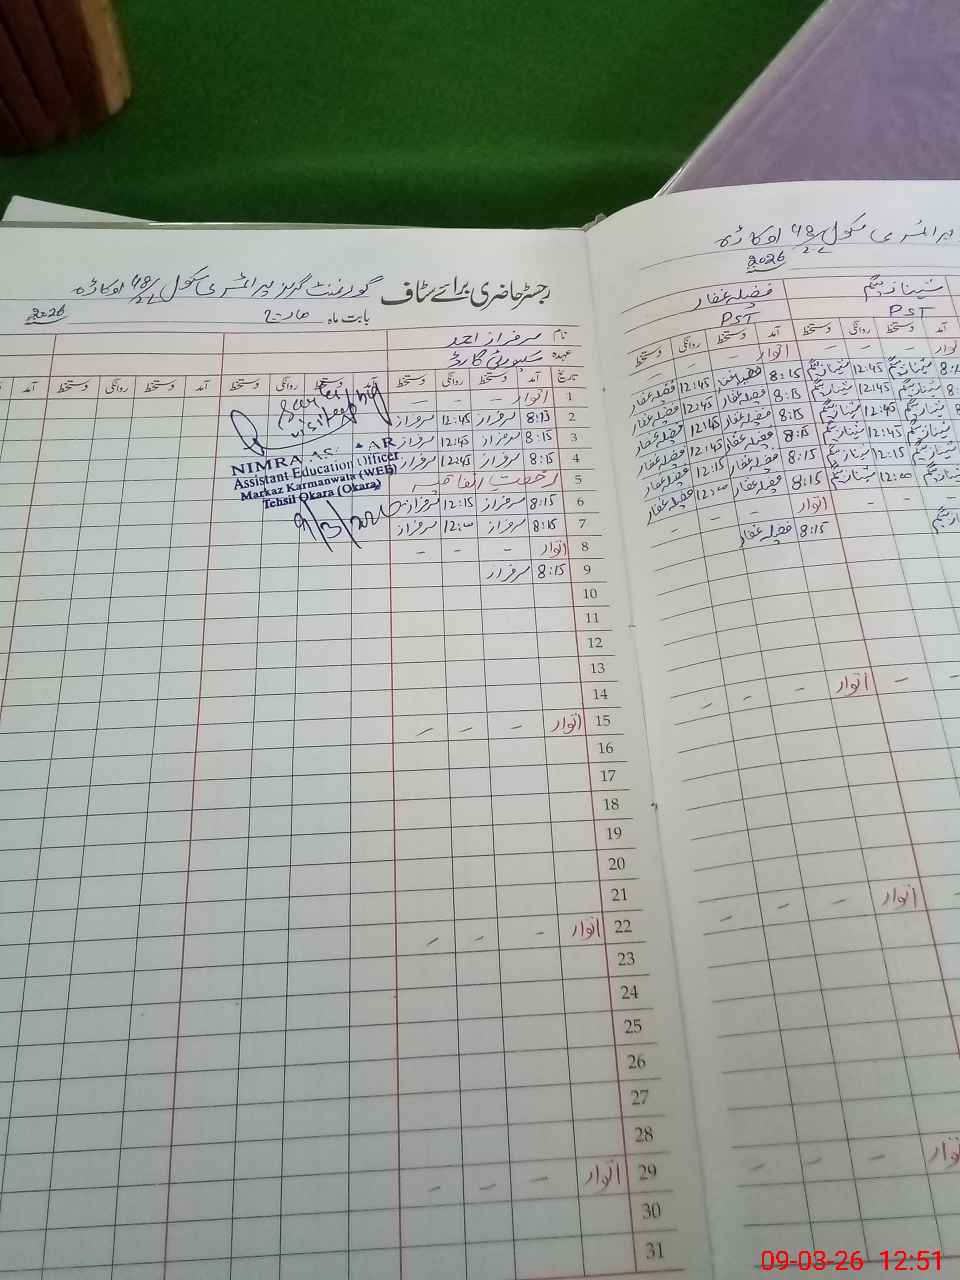 رجسٹر حاضری برائے سٹاف گورنمنٹ گرلز پرائمری سکول 48/2L اوکاڑہ
بابت ماہ مارچ 2026
نام سرفراز احمد
عہدہ سیکورٹی گارڈ
تاریخ آمد دستخط روانگی دستخط آمد دستخط روانگی دستخط آمد دستخط روانگی دستخط آمد
1 اتوار - - -
2 8:15 سرفراز 12:45 سرفراز
3 8:15 سرفراز 12:45 سرفراز
4 8:15 سرفراز 12:45 سرفراز
5 رخصت اتفاقیہ
6 8:15 سرفراز 12:15 سرفراز
7 8:15 سرفراز 12:00 سرفراز
8 اتوار - - -
9 8:15 سرفراز
10
11
12
13
14
15 اتوار - - -
16
17
18
19
20
21
22 اتوار - - -
23
24
25
26
27
28
29 اتوار - - -
30
31
visited
NIMRA
Assistant Education Officer
Markaz Karmanwala (WEE)
Tehsil Okara (Okara)
9/3/2026
پرائمری سکول 48/2L اوکاڑہ
2026
شہناز بیگم فضیلہ غفار
PST PST
آمد دستخط روانگی دستخط آمد دستخط روانگی دستخط
اتوار - - - اتوار - - -
شہناز بیگم 12:45 شہناز بیگم 8:15 فضیلہ غفار 12:45 فضیلہ غفار
شہناز بیگم 12:45 شہناز بیگم 8:15 فضیلہ غفار 12:45 فضیلہ غفار
شہناز بیگم 12:45 شہناز بیگم 8:15 فضیلہ غفار 12:45 فضیلہ غفار
شہناز بیگم 12:45 شہناز بیگم 8:15 فضیلہ غفار 12:45 فضیلہ غفار
شہناز بیگم 12:15 شہناز بیگم 8:15 فضیلہ غفار 12:15 فضیلہ غفار
شہناز بیگم 12:00 شہناز بیگم 8:15 فضیلہ غفار 12:00 فضیلہ غفار
- - اتوار - - -
شہناز بیگم 8:15 فضیلہ غفار
- - اتوار - - -
اتوار - - -
اتوار - - -
09-03-26 12:51